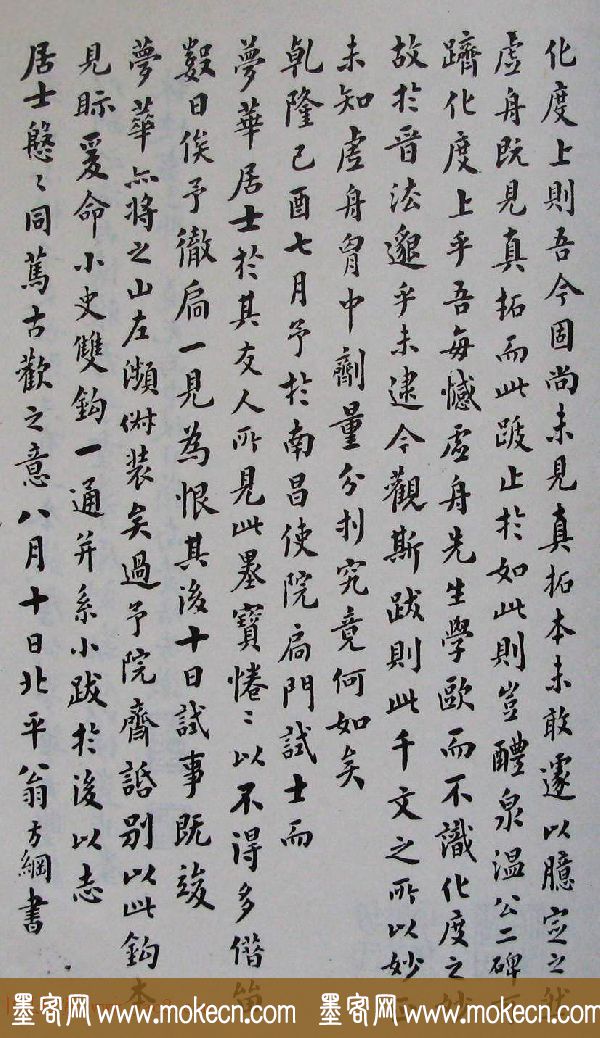 化度上則吾今固尚未見真拓本未敢遽以臆定之然
虛舟既見真拓而此跋止於如此則豈醴泉溫公二碑可
躋化度上乎吾每憾虛舟先生學歐而不識化度之妙
故於晉法邈乎未逮今觀斯跋則此千文之所以妙正
未知虛舟胷中劑量分刌究竟何如矣
乾隆己酉七月予於南昌使院扃門試士而
夢華居士於其友人所見此墨寶惓〻以不得多借
數日俟予徹扃一見為恨其後十日試事既竣
夢華亦將之山左瀕併裝矣過予院齋話別以此鈎本
見眎爰命小史雙鈎一通并系小跋於後以志
居士慇〻同篤古歡之意八月十日北平翁方綱書
墨客网 www.mokecn.com 墨客网 www.mokecn.com